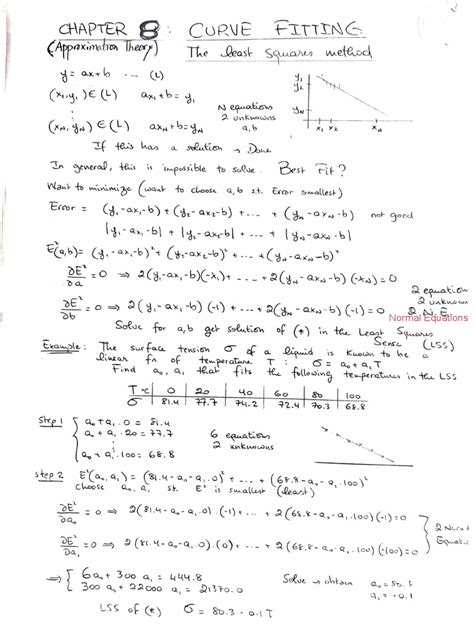 CHAPTER 8: CURVE FITTING
(Approximation Theory) The Least Squares method
y = ax+b ... (L)
(x₁,y₁) ∈ (L) ax₁+b = y₁
⋮
N equations
2 unknowns
a,b
(x_N,y_N) ∈ (L) ax_N+b = y_N
y₁
y₂
y_N
x₁ x₂ x_N
If this has a solution → Done
In general, this is impossible to solve. Best Fit?
Want to minimize (want to choose a,b s.t. Error smallest)
Error = (y₁-ax₁-b) + (y₂-ax₂-b) + ... + (y_N-ax_N-b) not good
|y₁-ax₁-b| + |y₂-ax₂-b| + ... + |y_N-ax_N-b|
E²(a,b) = (y₁-ax₁-b)² + (y₂-ax₂-b)² + ... + (y_N-ax_N-b)²
∂E²/∂a = 0 ⇒ 2(y₁-ax₁-b)(-x₁) + ... + 2(y_N-ax_N-b)(-x_N) = 0
2 equation
2 unknown
∂E²/∂b = 0 ⇒ 2(y₁-ax₁-b)(-1) + ... + 2(y_N-ax_N-b)(-1) = 0 2 N.E
Normal Equations
Solve for a,b get solution of (*) in the Least Squares
Sense (LSS)
Example: The surface tension σ of a liquid is known to be a
linear fn of temperature T : σ = a₀+a₁T
Find a₀, a₁ that fits the following temperatures in the LSS
T °C 0 20 40 60 80 100
σ 81.4 77.7 74.2 72.4 70.3 68.8
Step 1 { a₀+a₁.0 = 81.4
a₀+a₁.20 = 77.7
⋮
6 equations
2 unknown
a₀+a₁.100 = 68.8
Step 2 E²(a₀,a₁) = (81.4-a₀-a₁.0)² + ... + (68.8-a₀-a₁.100)²
choose a₀, a₁ st. E² is smallest (least)
∂E²/∂a₀ = 0 ⇒ 2(81.4-a₀-a₁.0).(-1) + ... + 2(68.8-a₀-a₁.100)(-1) = 0
∂E²/∂a₁ = 0 ⇒ 2(81.4-a₀-a₁.0)(0) + ... + 2(68.8-a₀-a₁.100)(-100) = 0
⇒ { 6a₀ + 300 a₁ = 444.8
300 a₀ + 22000 a₁ = 21370.0
Solve → obtain a₀ = 80.3
a₁ = -0.1
LSS of (*) σ = 80.3 - 0.1T